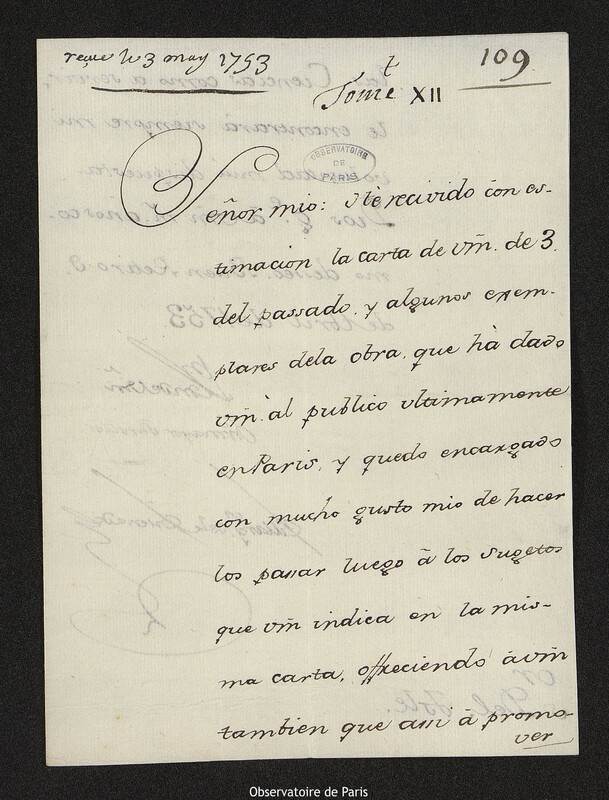 reçue le 3 may 1753
109
t
Tome XII
OBSERVATOIRE
DE
PARIS
Señor mio: He recivido con es-
timacion la carta de vm̃. de 3.
del passado, y algunos exem-
plares dela obra, que hà dado
vm̃. al publico ultimamente
en Paris, y quedo encargado
con mucho gusto mio de hacer
los passar luego â los sugetos
que vm̃ indica en la mis-
ma carta, offreciendo â vm̃
tambien que assi â promo-
ver
Observatoire de Paris